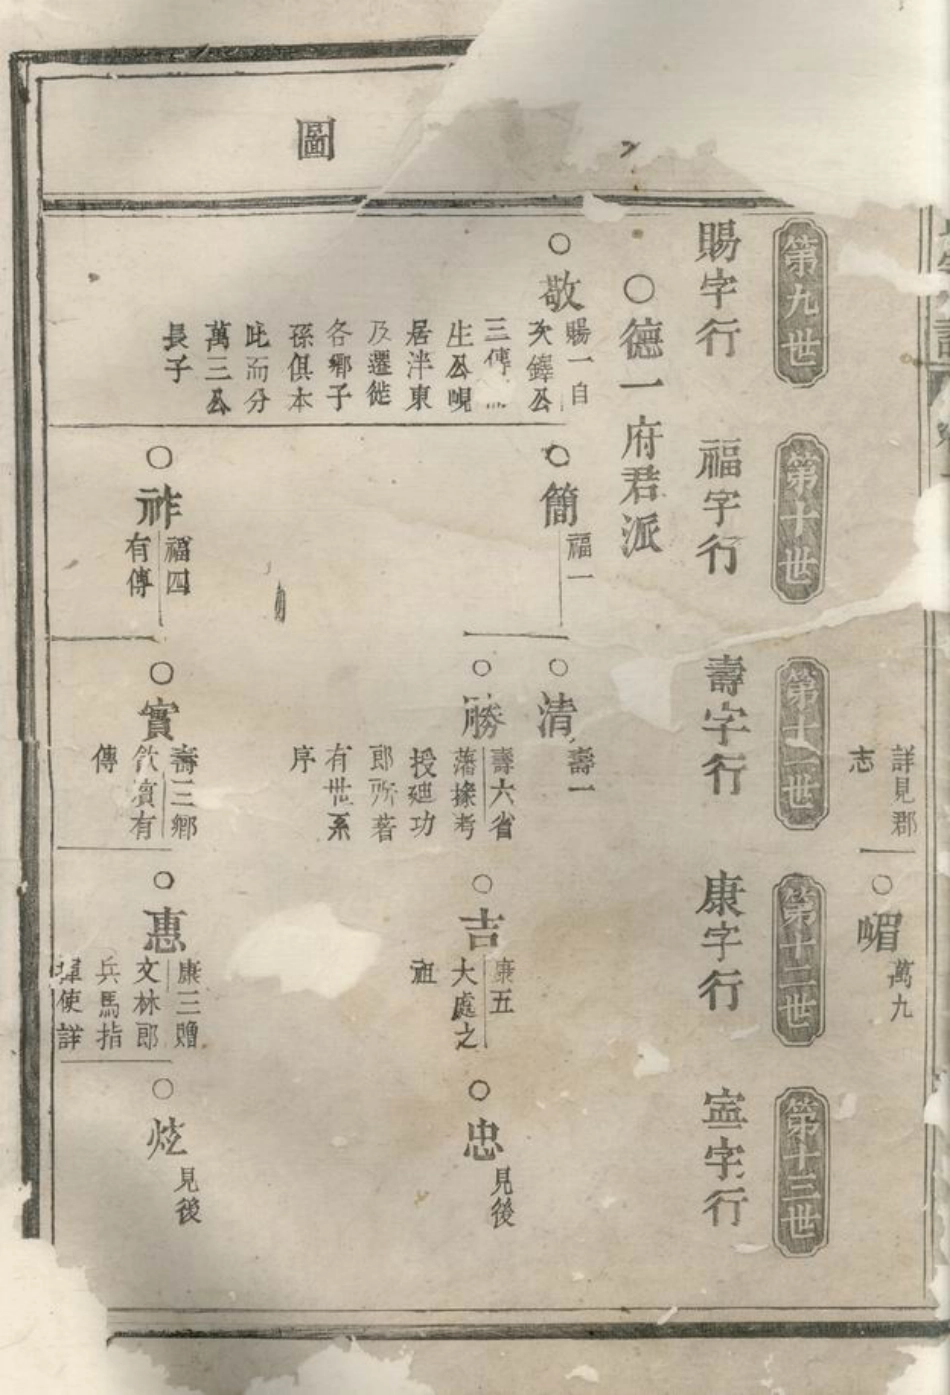 圖
詳見郡
志
嵋
萬九
第九世
第十世
第十一世
第十二世
第十三世
賜字行
福字行
壽字行
康字行
寍字行
德一府君派
敬
賜一自
次鐸公
三傳
生公晛
居泮東
及遷徙
各鄉子
孫俱本
此而分
萬三公
長子
簡
福一
清
壽一
勝
壽六省
藩掾考
授廸功
郎所著
有世系
序
吉
康五
大處之
祖
忠
見後
祚
福四
有傳
實
壽三鄉
飲賓有
傳
惠
康三贈
文林郎
兵馬指
揮使詳
炫
見後